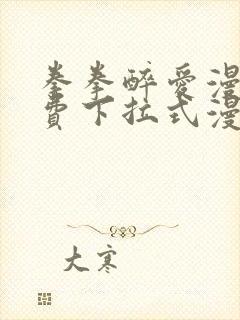 拳拳醉爱漫
费下拉式漫
大寒